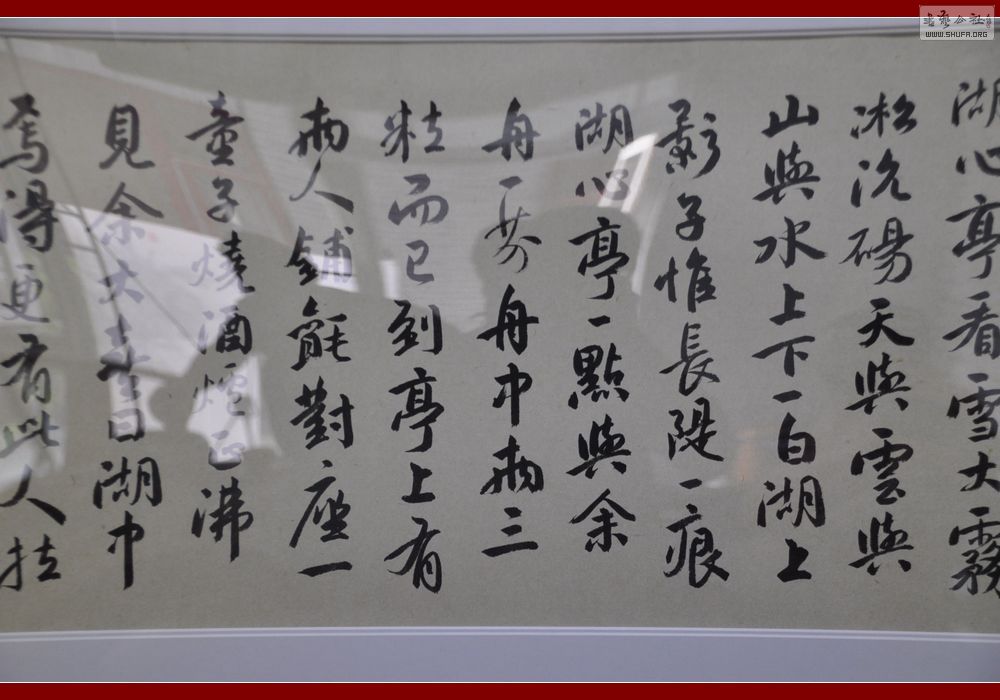 湖心亭看雪大霧
淞沆碭天與雲與
山與水上下一白湖上
影子惟長隄一痕
湖心亭一點與余
舟一芥舟中兩三
粒而已到亭上有
兩人鋪氈對座一
童子燒酒爐正沸
見余大喜曰湖中
焉得更有此人拉
書藝公社
WWW.SHUFA.ORG